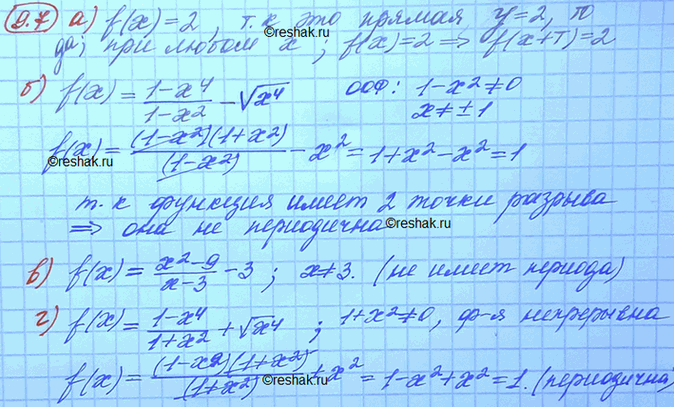 9.7 а) f(x) = 2, т.к это прямая y=2, то
да; при любом x; f(x)=2 ⇒ f(x+T)=2
б) f(x) = (1-x⁴)/(1-x²) - √x⁴ ООФ: 1-x²≠0
x≠±1
f(x) = (1-x²)(1+x²)/(1-x²) - x² = 1+x²-x² = 1
©reshak.ru
т.к функция имеет 2 точки разрыва
⇒ она не периодична ©reshak.ru
в) f(x) = (x²-9)/(x-3) - 3; x≠3. (не имеет периода)
г) f(x) = (1-x⁴)/(1+x²) + √x⁴; 1+x²≠0, ф-я непрерывна
f(x) = (1-x²)(1+x²)/(1+x²) + x² = 1-x²+x² = 1. (периодична)
©reshak.ru